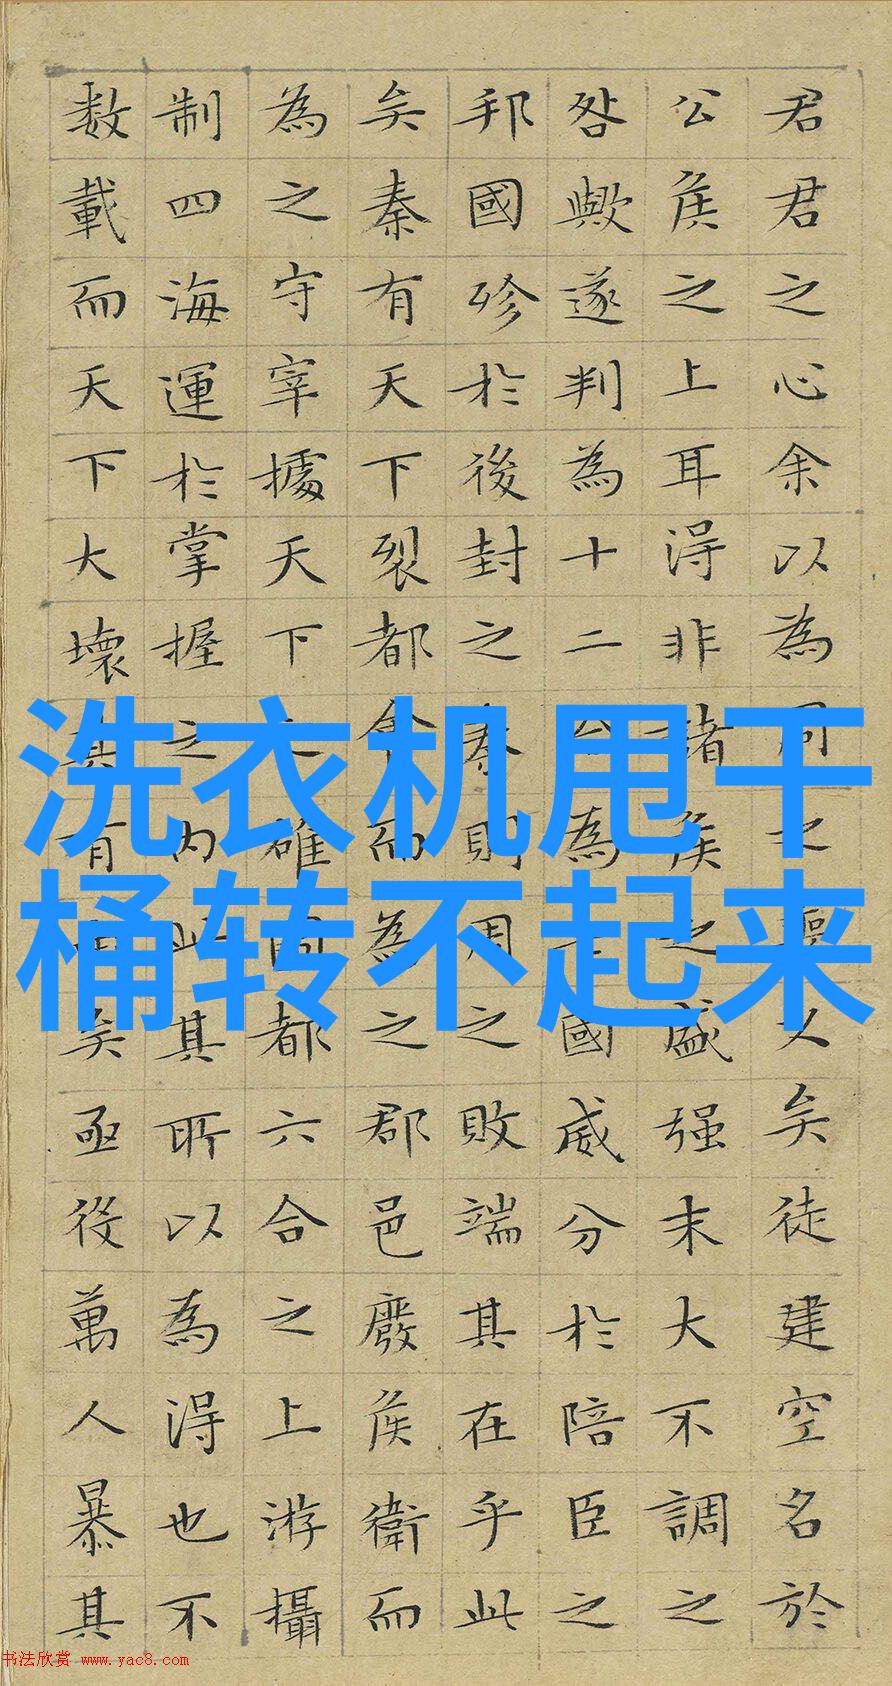 君君之心余以為周之喪久矣徒建空名於
公侯之上耳得非諸侯之盛强末大不調之
咎歟遂判為十二合為七國威分於陪臣之
邦國殄於後封之秦則周之敗端其在乎此
矣秦有天下裂都會而為之郡邑廢侯衛而
為之守宰據天下之雄圖都六合之上游攝
制四海運於掌握之内此其所以為得也不
数載而天下大壞其有由矣亟役萬人暴其
洗衣机甩干
桶转不起来
书法欣赏 www.yac8.com